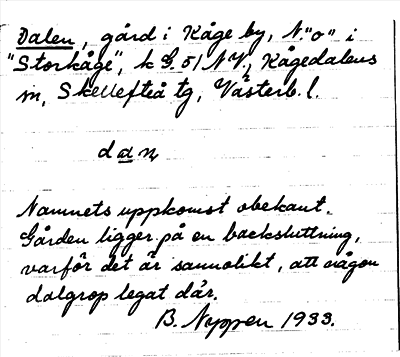 Dalen, gård i Kåge by, N:"o" i
"Storkåge", k G. 51 NV, Kågedalens
sn, Skellefteå tg, Västerb. l.
dan
Namnets uppkomst obekant.
Gården ligger på en backsluttning,
varför det är sannolikt, att någon
dalgrop legat där.
B. Nyppen 1933.